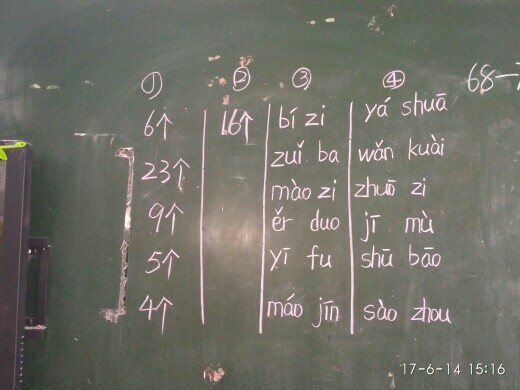 ① ② ③ ④ 68-
6个 16个 bí zi yá shuā
zuǐ ba wǎn kuài
23个 mào zi zhuō zi
9个 ěr duo jī mù
5个 yī fu shū bāo
4个 máo jīn sào zhou
17-6-14 15:16